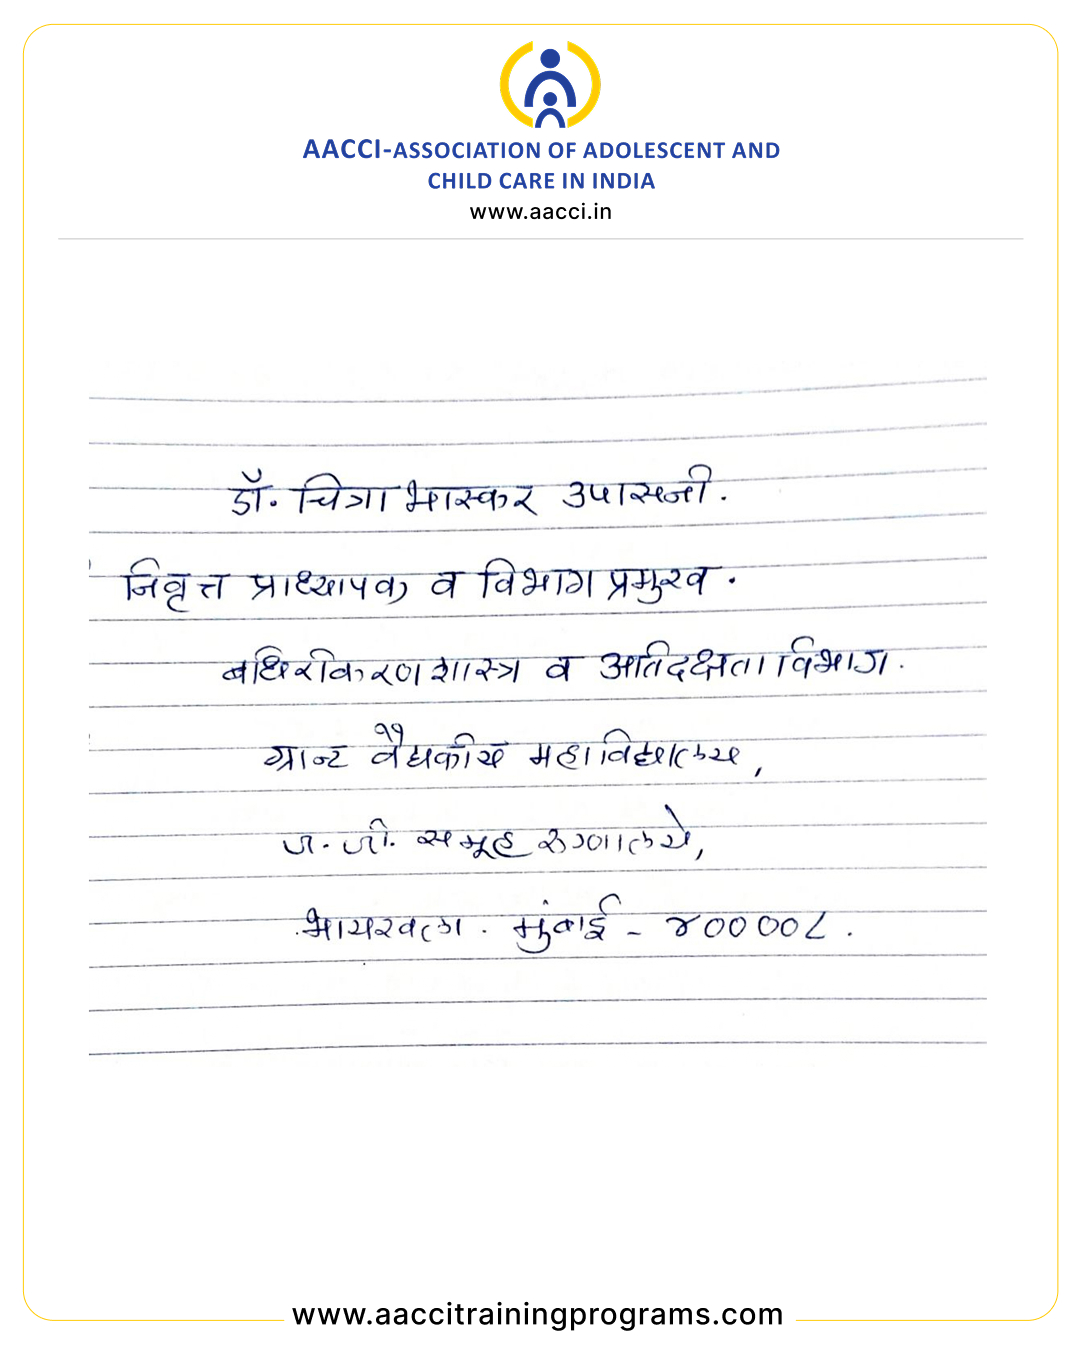 AACCI-ASSOCIATION OF ADOLESCENT AND
CHILD CARE IN INDIA
www.aacci.in
डॉ. चित्रा भास्कर उपासनी.
निवृत्त प्राध्यापक व विभाग प्रमुख.
बधिरीकरणशास्त्र व अतिदक्षता विभाग.
ग्रान्ट वैद्यकीय महाविद्यालय,
ज. जी. समूह रुग्णालये,
भायखला. मुंबई - ४००००८.
www.aaccitrainingprograms.com